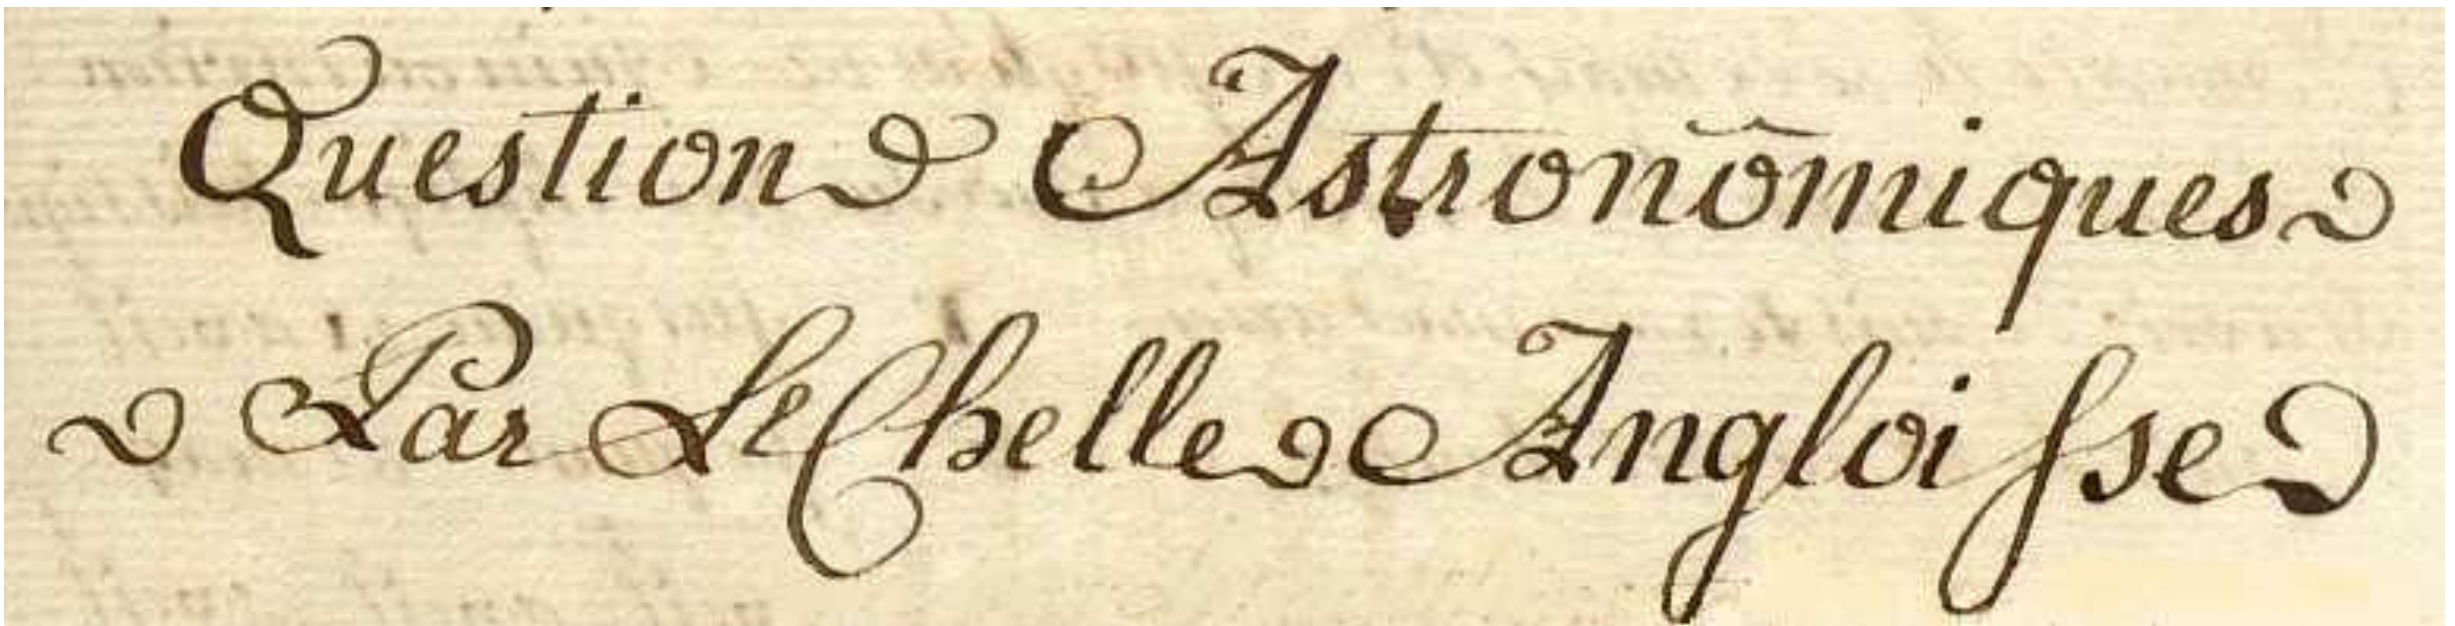 Question Astronõmiques
Par LeChelle Angloisse